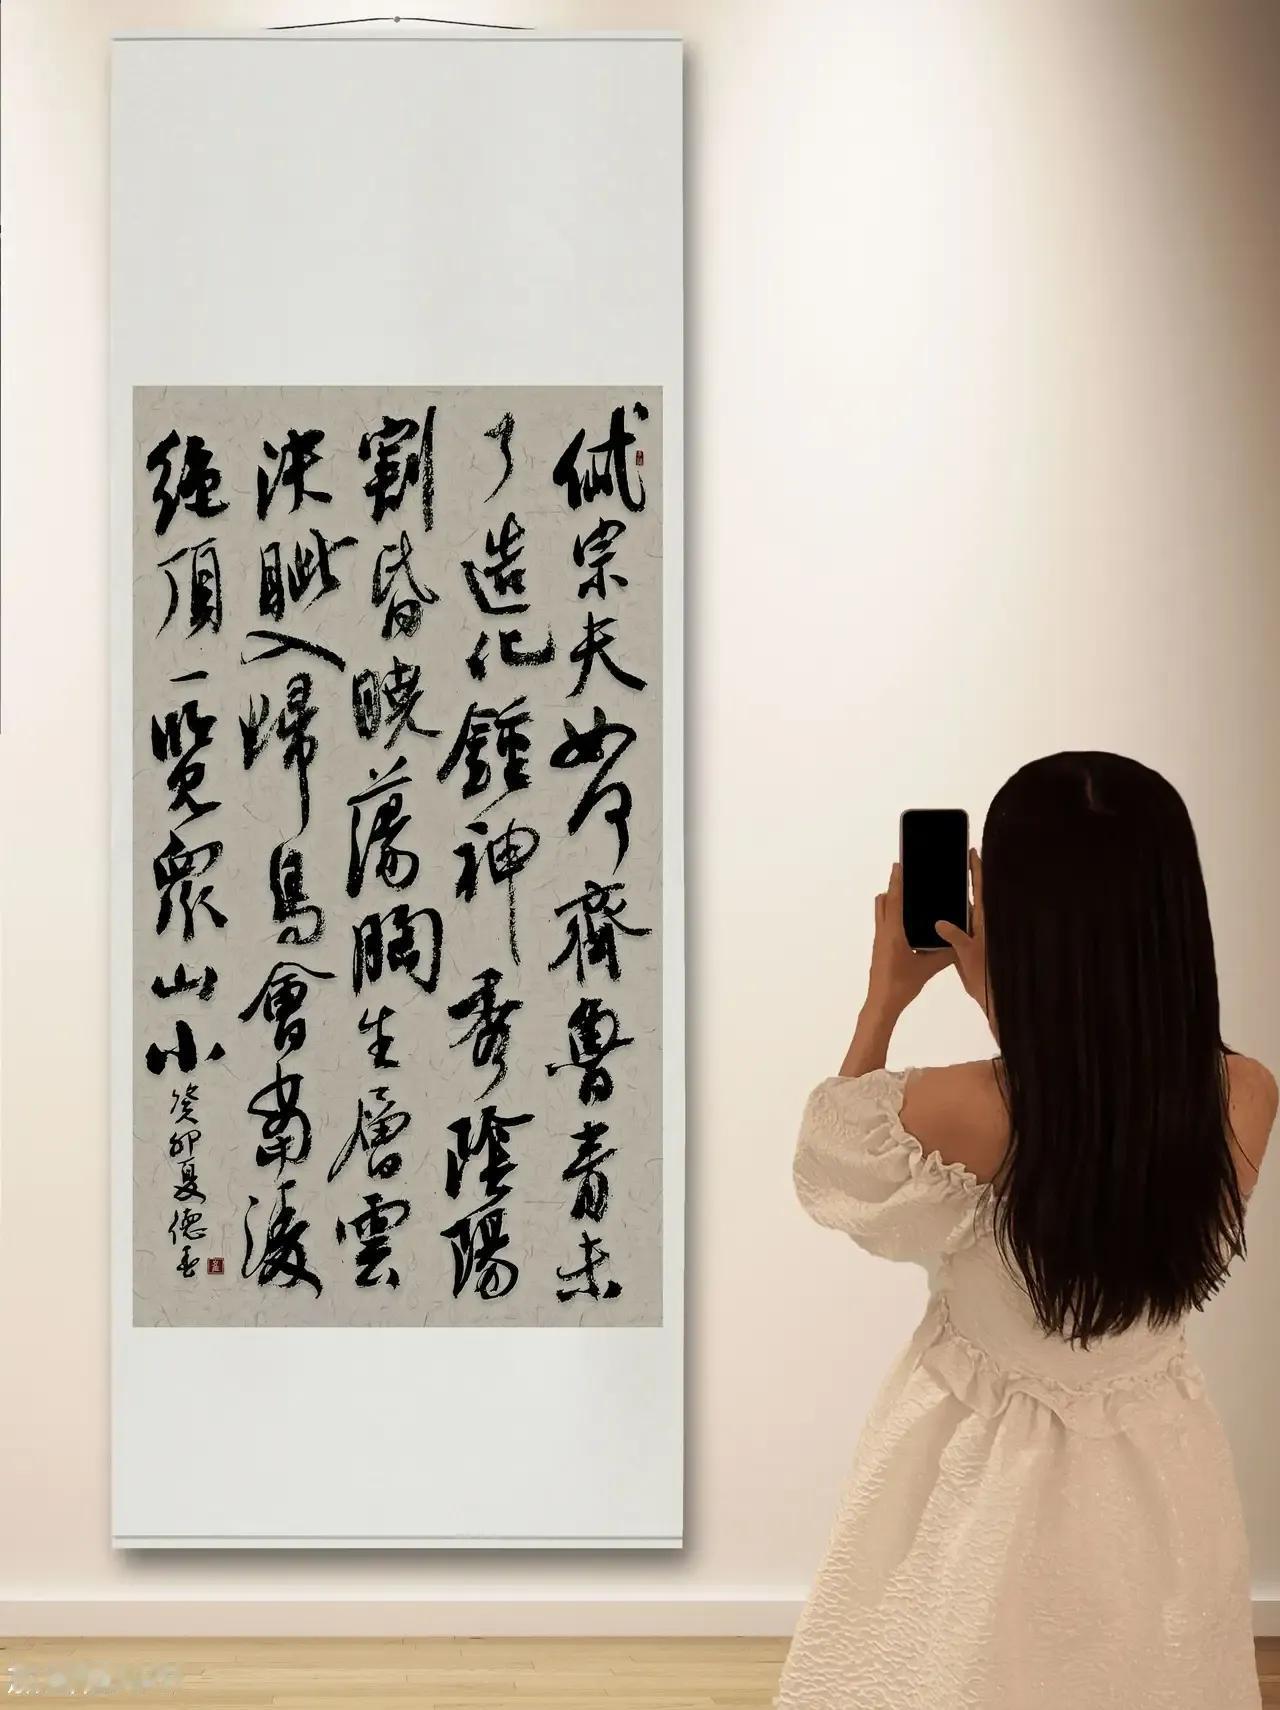 岱宗夫如何齊魯青未
了造化鍾神秀陰陽
割昏曉蕩胸生層雲
決眦入歸鳥會當淩
絕頂一覽衆山小
癸卯夏德